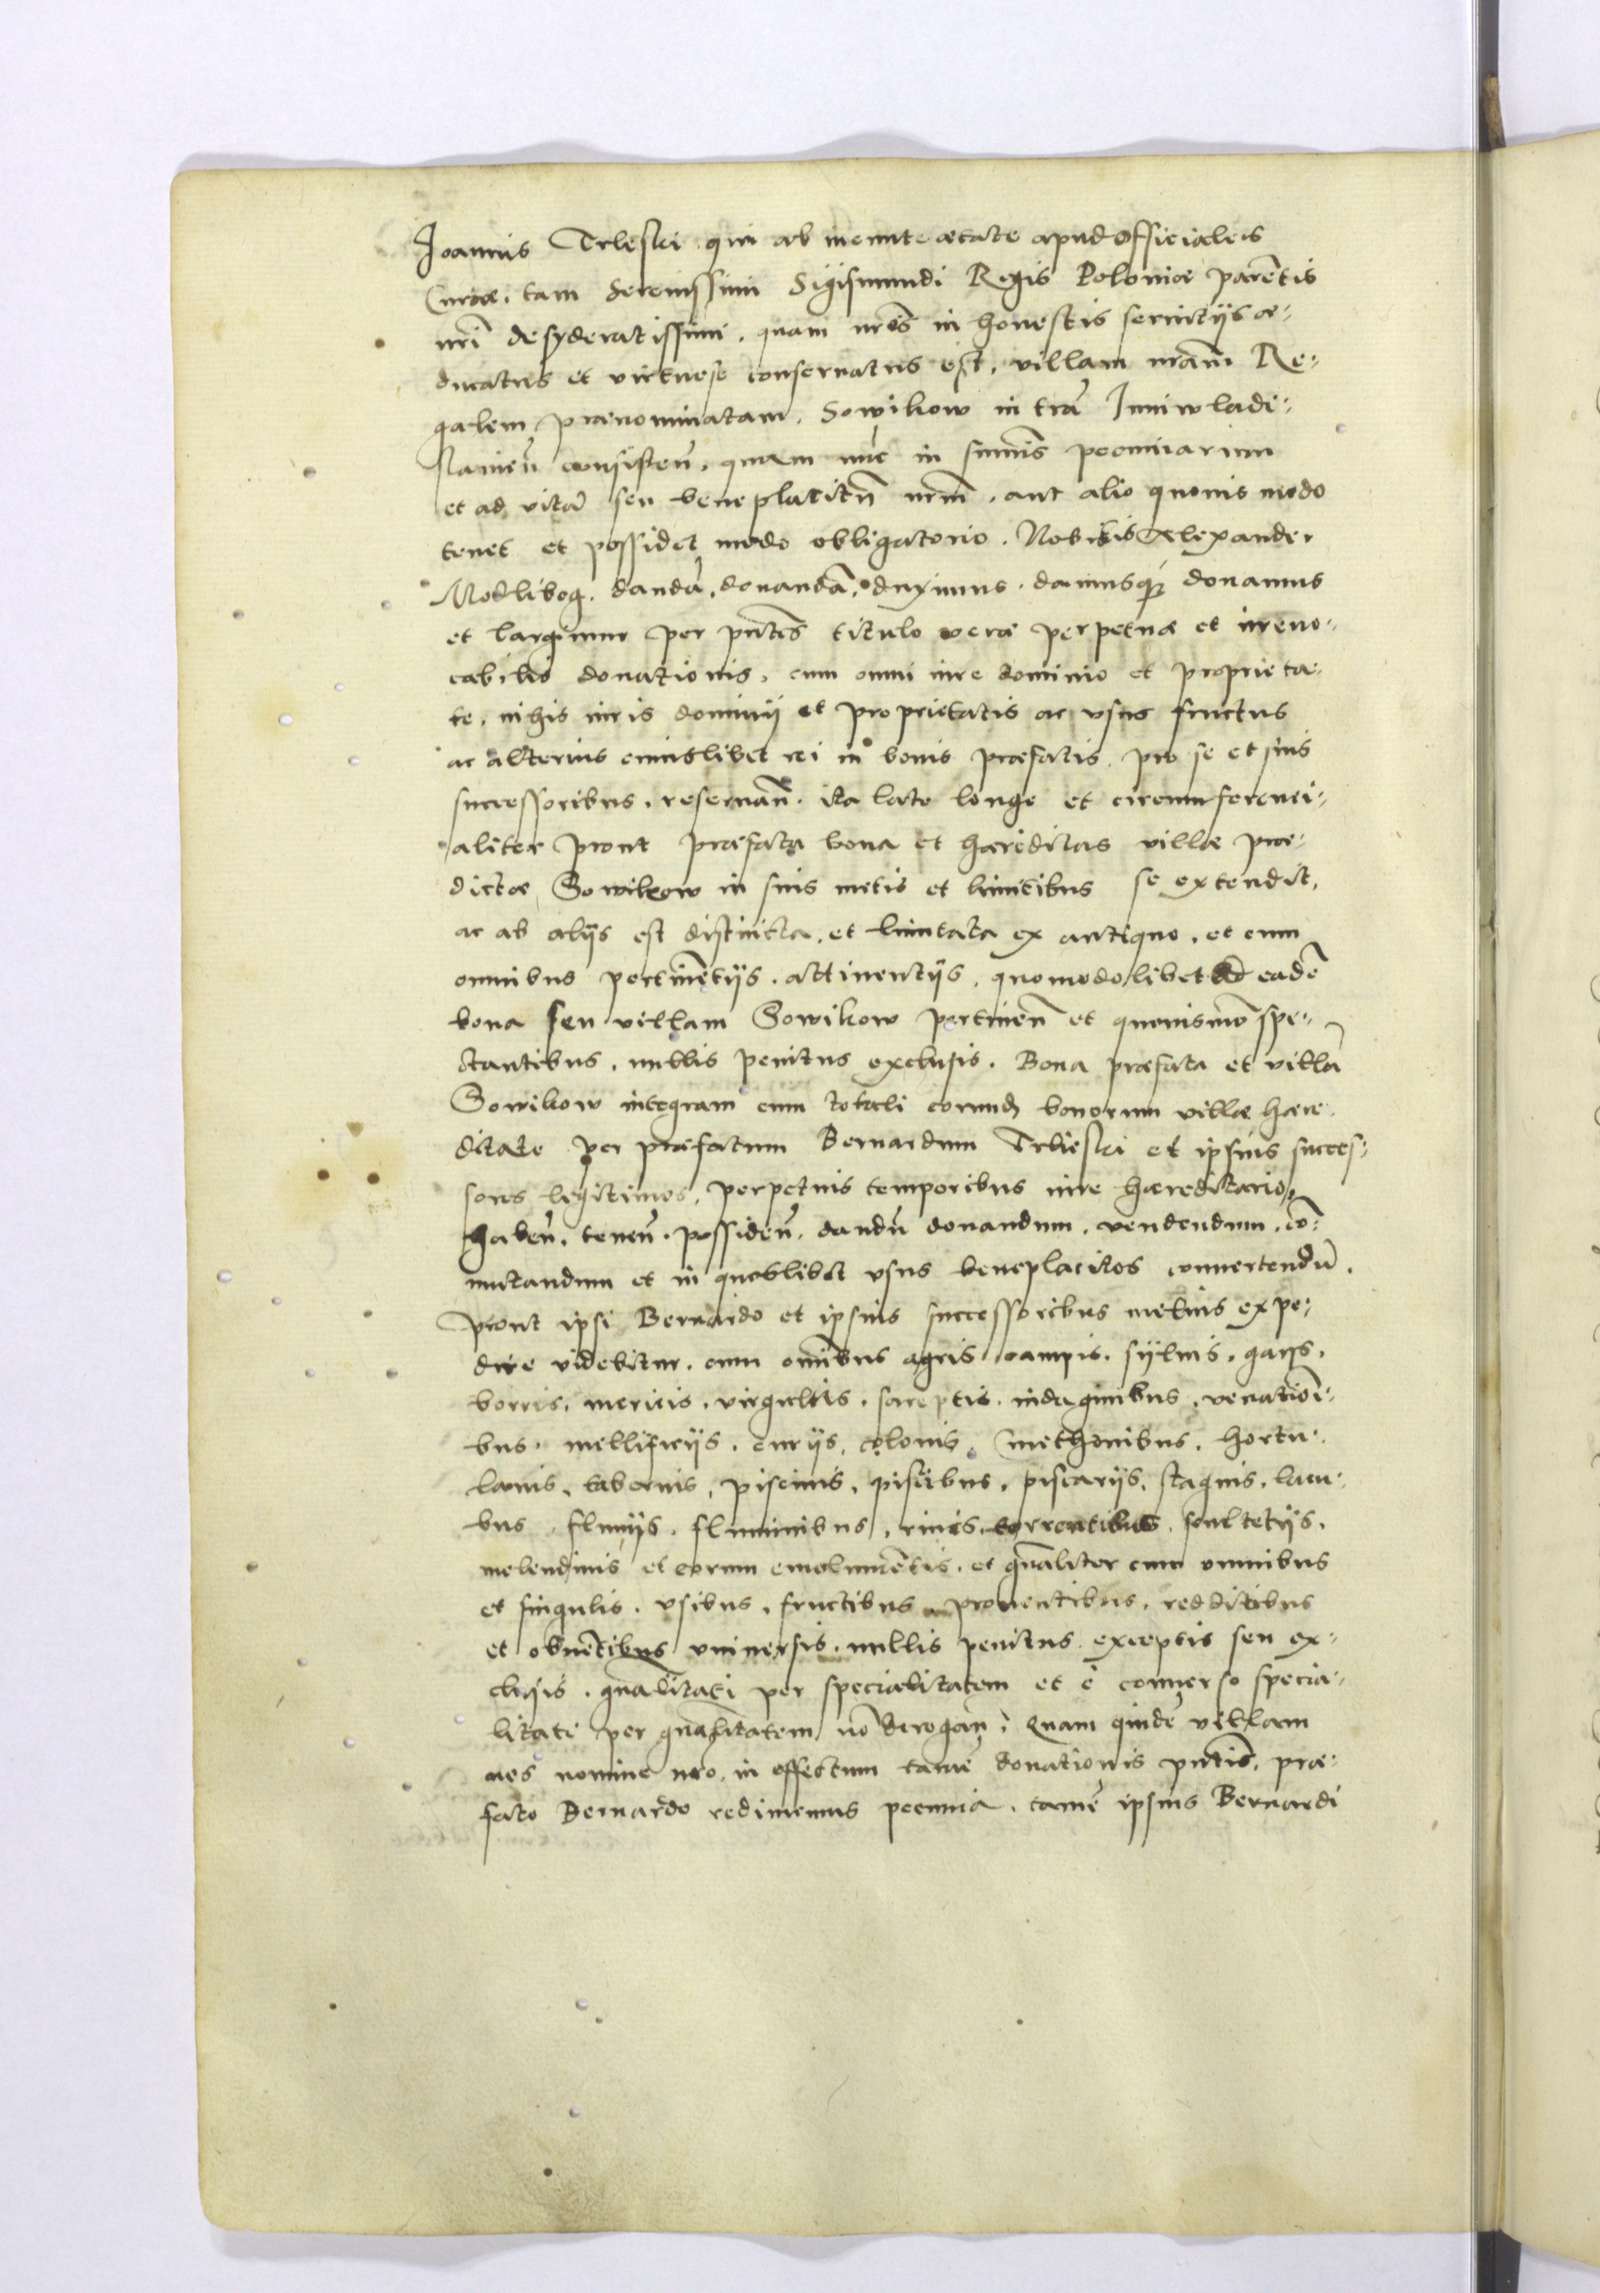 Joannis Trleski qui ab ineunte ætate apud officiales
Curæ, tam Serenissimi Sigismundi Regis Poloniæ parētis
nr̄i desyderatissimi, quam nr̄os in honestis seruitijs æ-
ducatus et virtuose conseruatus est, villam nr̄am Re-
galem prænominatam, Sowikow in tr̄a Juniwladi-
slauien̄ consisten̄, quam nūc in sum̄is pecuniarum
et ad vitā seu beneplacitū nr̄m, aut alio quouis modo
tenet et possidet modo obligatorio. Nobilis Alexander
Modlibog. dandā, donandā, duximus, damusq̨ donamus
et largimur per pn̄tes titulo veræ perpetuæ et irreuo-
cabilis donationis, cum omni iure dominio et proprieta-
te, nihis iuris dominij et proprietatis ac vsus fructus
ac alterius cuiuslibet rei in bonis præfatis, pro se et suis
successoribus, reseruan̄. ita late longe et circumferenci-
aliter prout præfata bona et hæreditas villæ præ-
dictæ Sowikow in suis metis et limitibus se extendit,
ac ab alijs est distincta, et limitata ex antiquo, et cum
omnibus pertinētijs, attinentijs, quomodolibet ad eadē
bona seu villam Sowikow pertinen̄ et quouismō spe-
ctantibus, nullis penitus exclusis. Bona præfata et villā
Sowikow integram cum totali eorund̨ bonorum villæ hære
ditate per præfatum Bernardum Trleski et ipsius succes-
sores legitimos, perpetuis temporibus iure hæreditario,
haben̄, tenen̄, possiden̄, dandū donandum, vendendum, cō-
mutandum et in quoslibet vsus beneplacitos conuertendū,
prout ipsi Bernardo et ipsius successoribus melius expe-
dire videbitur, cum om̄ibus agris, campis, syluis, gaijs,
borris, mericis, virgultis, sareptis, indaginibus, venationi-
bus, mellificijs, curijs, colonis, cmethonibus, hortu-
lanis, tabernis, piscinis, piscibus, piscarijs, stagnis, lacu-
bus, fluuijs, fluminibus, riuis, torrentibus, scultetijs,
molendinis et eorum emolumētis, et gn̄aliter cum omnibus
et singulis, vsibus, fructibus prouentibus, redditibus
et obuētibus vniuersis, nullis penitus exceptis seu ex-
clusis, gn̄alitati per specialitatem et è conuerso specia-
litati per gn̄alitatem nō derogan̄: Quam quidē villam
nos nomine nr̄o, in effectum tamē donationis pn̄tis, præ-
fato Bernardo redimemus pecunia, tamē ipsius Bernardi